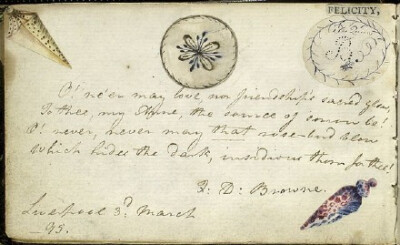 FELICITY.
O! ne'er may love, nor friendship's sacred glow,
To thee, my Anne, the source of sorrow be!
O! never, never may that rose-bud blow
Which hides the dark, insidious thorn for thee!
D: Browne.
Liverpool 3d. March
_95.